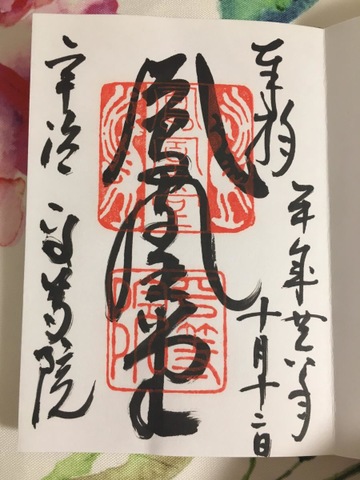 奉拝
平成廿八年
十月十二日
鳳凰堂
宇治 平等院